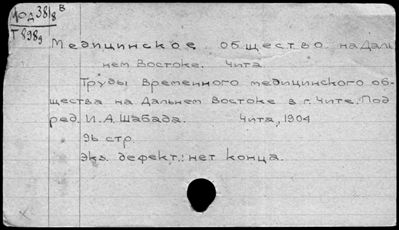 Мод 38/8 В
Т 8989
Медицинское общество на Даль
нем Востоке. Чита.
Труды Временного медицинского об-
щества на Дальнем Востоке в г. Чите. Под
ред. И. А. Шабада. Чита, 1904
96 стр.
Экз. дефект.: нет конца.